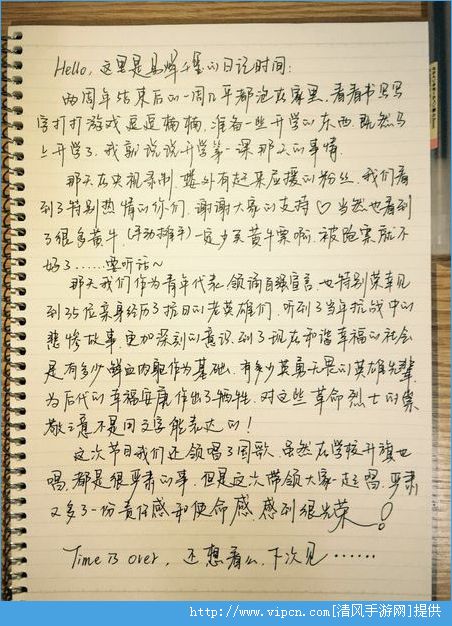 Hello, 这里是易烊千玺的日记时间:
两周年结束后的一周几乎都泡在家里, 看看书写写
字打打游戏逗逗楠楠, 准备一些开学的东西. 既然马
上开学了, 我就说说开学第一课那天的事情.
那天在央视录制, 楼外有赶来应援的粉丝, 我们看
到了特别热情的你们, 谢谢大家的支持♡ 当然也看到
了很多黄牛(手动抽牛)一定少买黄牛票啊, 被
票就不
好了……要听话~
那天我们作为青年代表, 领诵自强宣言, 也特别荣幸见
到35位亲身经历了抗日的老英雄们, 听到了当年抗战中的
悲惨故事, 更加深刻的意识到了现在和谐幸福的社会
是有多少鲜血肉躯作为基础, 有多少英勇无畏的英雄先辈
为后代的幸福安康作出了牺牲, 对这些革命烈士的崇
敬之意不是用文字能表达的!
这次节目我们还领唱了国歌, 虽然在学校升旗也
唱, 都是很严肃的事, 但是这次带领大家一起唱, 严肃
又多了一份责任感和使命感, 感到很光荣!
Time is over, 还想看么, 下次见……
http://www.vipcn.com[清风手游网]提供